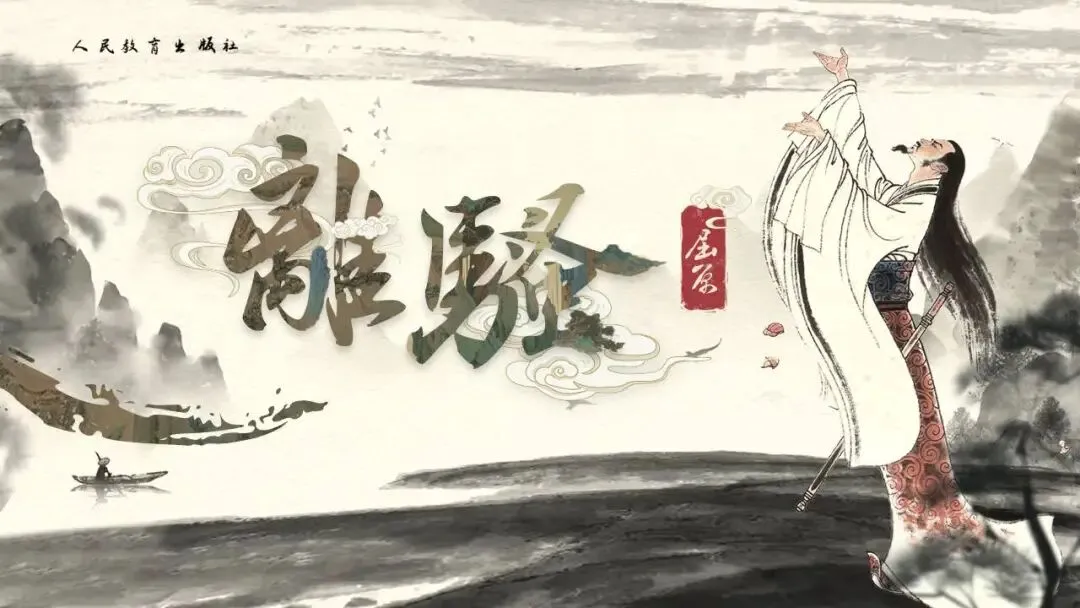 人民教育出版社
離騷
屈原